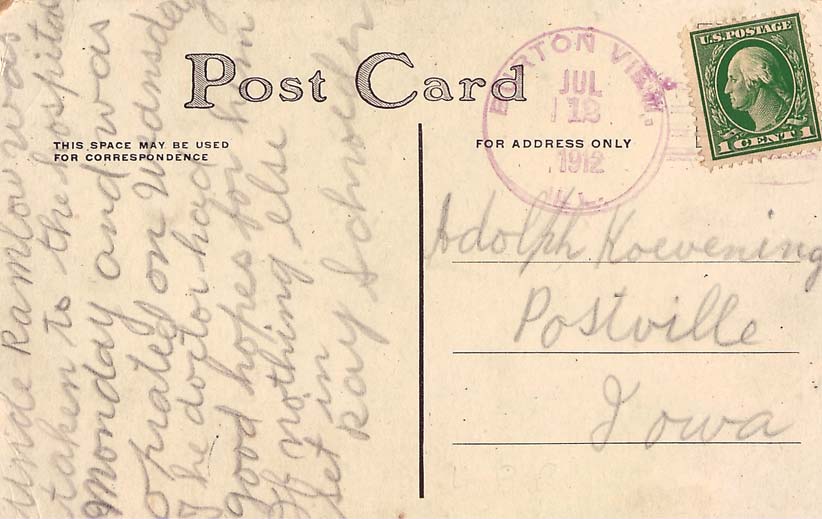 Post Card
THIS SPACE MAY BE USED
FOR CORRESPONDENCE
FOR ADDRESS ONLY
BURTON VIEW,
JUL
12
1912
ILL.
U.S. POSTAGE
1 CENT 1
Adolph Koevening
Postville
Iowa
Uncle Ramlow was
taken to the hospital
Monday and was
oprated on Wedansday
The doctor had
good hopes for him
If nothing else
set in
Ray Schroeder